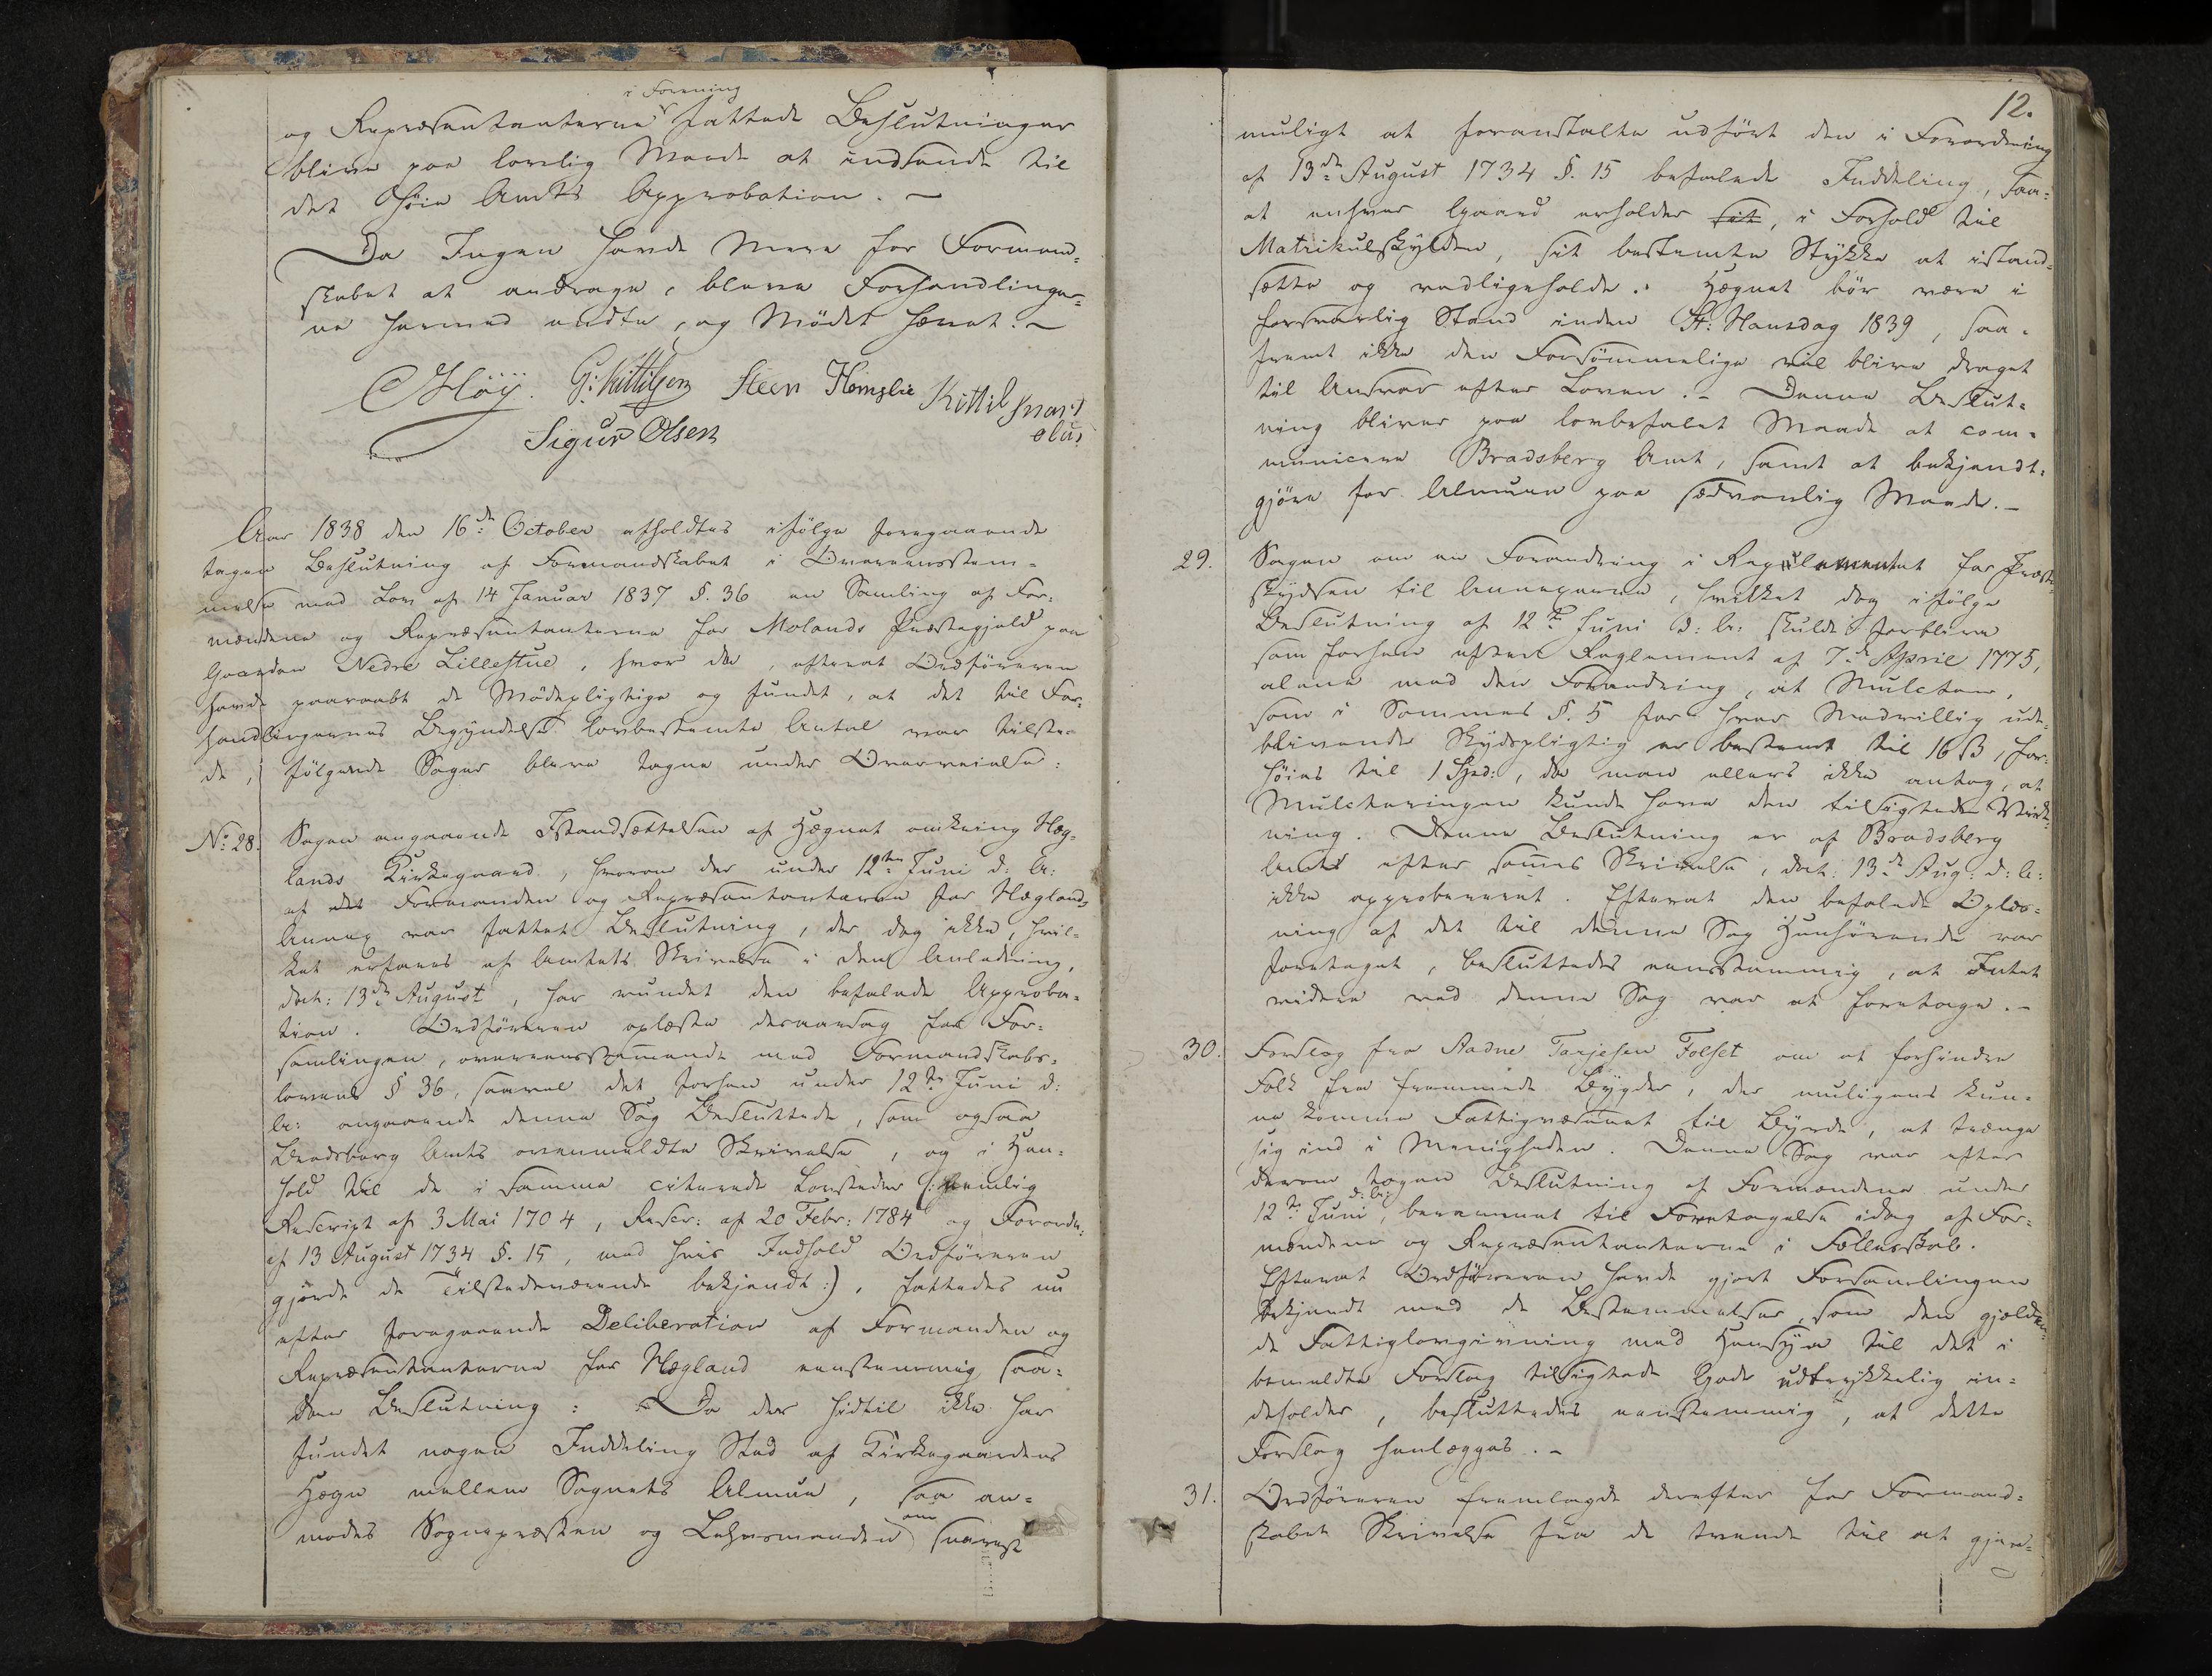 i Forening
og Repræsentanterne fattede Beslutninger
blive paa lovlig Maade at indsende til
det Høie Amts Approbation. —
Da Ingen havde Mere for Formand=
skabet at andrage, bleve Forhandlinger=
ne hermed endte, og Mødet hævet. —
C Høÿ. G: Kittilsen Steen Homslie Kittil
Sigur Olsen
Aar 1838 den 16de October afholdtes ifølge foregaaende
tagen Beslutning af Formandskabet i Overeensstem=
melse med Lov af 14 Januar 1837 §. 36 en Samling af For=
mændene og Repræsentanterne for Molands Præstegjeld paa
Gaarden Nedre Lillestue, hvor da, efterat Ordføreren
havde paaraabt de Mødepligtige og fundet, at det til For=
handlingernes Begyndelse lovbestemte Antal var tilste=
de, følgende Sager bleve tagne under Overveielse:
No: 28. Sagen angaaende Istandsættelsen af Hægnet omkring Hæg=
lands Kirkegaard, hvorom der under 12te Juni d: A:
af det Formanden og Repræsentanterne for Hæglands
Annex var fattet Beslutning, der dog ikke, hvil=
ket erfares af Amtets Skrivelse i den Anledning,
dat: 13de August, har vundet den befalede Approba=
tion. Ordføreren oplæste desaarsag for For=
samlingen, overeensstemmende med Formandskabs=
lovens § 36, saavel det forhen under 12te Juni d:
A: angaaende denne Sag Besluttede, som ogsaa
Bradsberg Amts ovenmeldte Skrivelse, og i Hen=
hold til de i samme citerede Lovsteder (: nemlig
Rescript af 3 Mai 1704, Rescr: af 20 Febr: 1784 og Forordn:
af 13 August 1734 §. 15, med hvis Indhold Ordføreren
gjorde de Tilstedeværende bekjendt :), fattedes nu
efter foregaaende Deliberation af Formanden og
Repræsentanterne for Hægland eenstemmig saa=
dan Beslutning: Da der hidtil ikke har
fundet nogen Inddeling Sted af Kirkegaardens
Hægn mellem Sognets Almue, saa an=
om
modes Sognepræsten og Lehnsmanden snarest
12.
muligt at foranstalte udført den i Forordning
af 13de August 1734 §. 15 befalede Inddeling, saa=
at enhver Gaard erholder sit, i Forhold til
Matrikulskylden, sit bestemte Stykke at istand=
sætte og vedligeholde. Hægnet bør være i
forsvarlig Stand inden St: Hansdag 1839, saa=
fremt ikke den Forsømmelige vil blive draget
til Ansvar efter Loven. — Denne Beslut=
ning bliver paa lovbefalet Maade at com=
municere Bradsberg Amt, samt at bekjendt=
gjøre for Almuen paa sædvanlig Maade. —
29. Sagen om en Forandring i Reglementet for Præste=
skydsen til Annexerne, hvilket dog ifølge
Beslutning af 12te Juni d: A: skulde forblive
som forhen efter Reglement af 7de April 1775,
alene med den Forandring, at Mulcten,
som i Sammes §. 5 for hver Modvillig ude=
blivende Skydspligtig er bestemt til 16 ß, for=
høies til 1 Spd:, da man ellers ikke antog, at
Mulcteringen kunde have den tilsigtede Virk=
ning. Denne Beslutning er af Bradsberg
Amt efter sammes Skrivelse, dat: 13de Aug. d: A:
ikke approberet. Efterat den befalede Oplæs=
ning af det til denne Sag Henhørende var
foretaget, besluttedes eenstemmig, at Intet
videre ved denne Sag var at foretage. —
30. Forslag fra Aadne Tarjesen Folset om at forhindre
Folk fra fremmede Bygder, der muligens kun=
ne komme Fattigvæsenet til Byrde, at trænge
sig ind i Menigheden. Denne Sag var efter
derom tagen Beslutning af Formændene under
d: A:
12te Juni, berammet til Foretagelse idag af For=
mændene og Repræsentanterne i Fællesskab.
Efterat Ordføreren havde gjort Forsamlingen
bekjendt med de Bestemmelser, som den gjelden=
de Fattiglovgivning med Hensyn til det i
bemeldte Forslag tilsigtede Gode udtrykkelig in=
deholder, besluttedes eenstemmig, at dette
Forslag henlægges. —
31. Ordføreren fremlagde derefter for Formand=
skabet Skrivelse fra de tvende til at gjen=